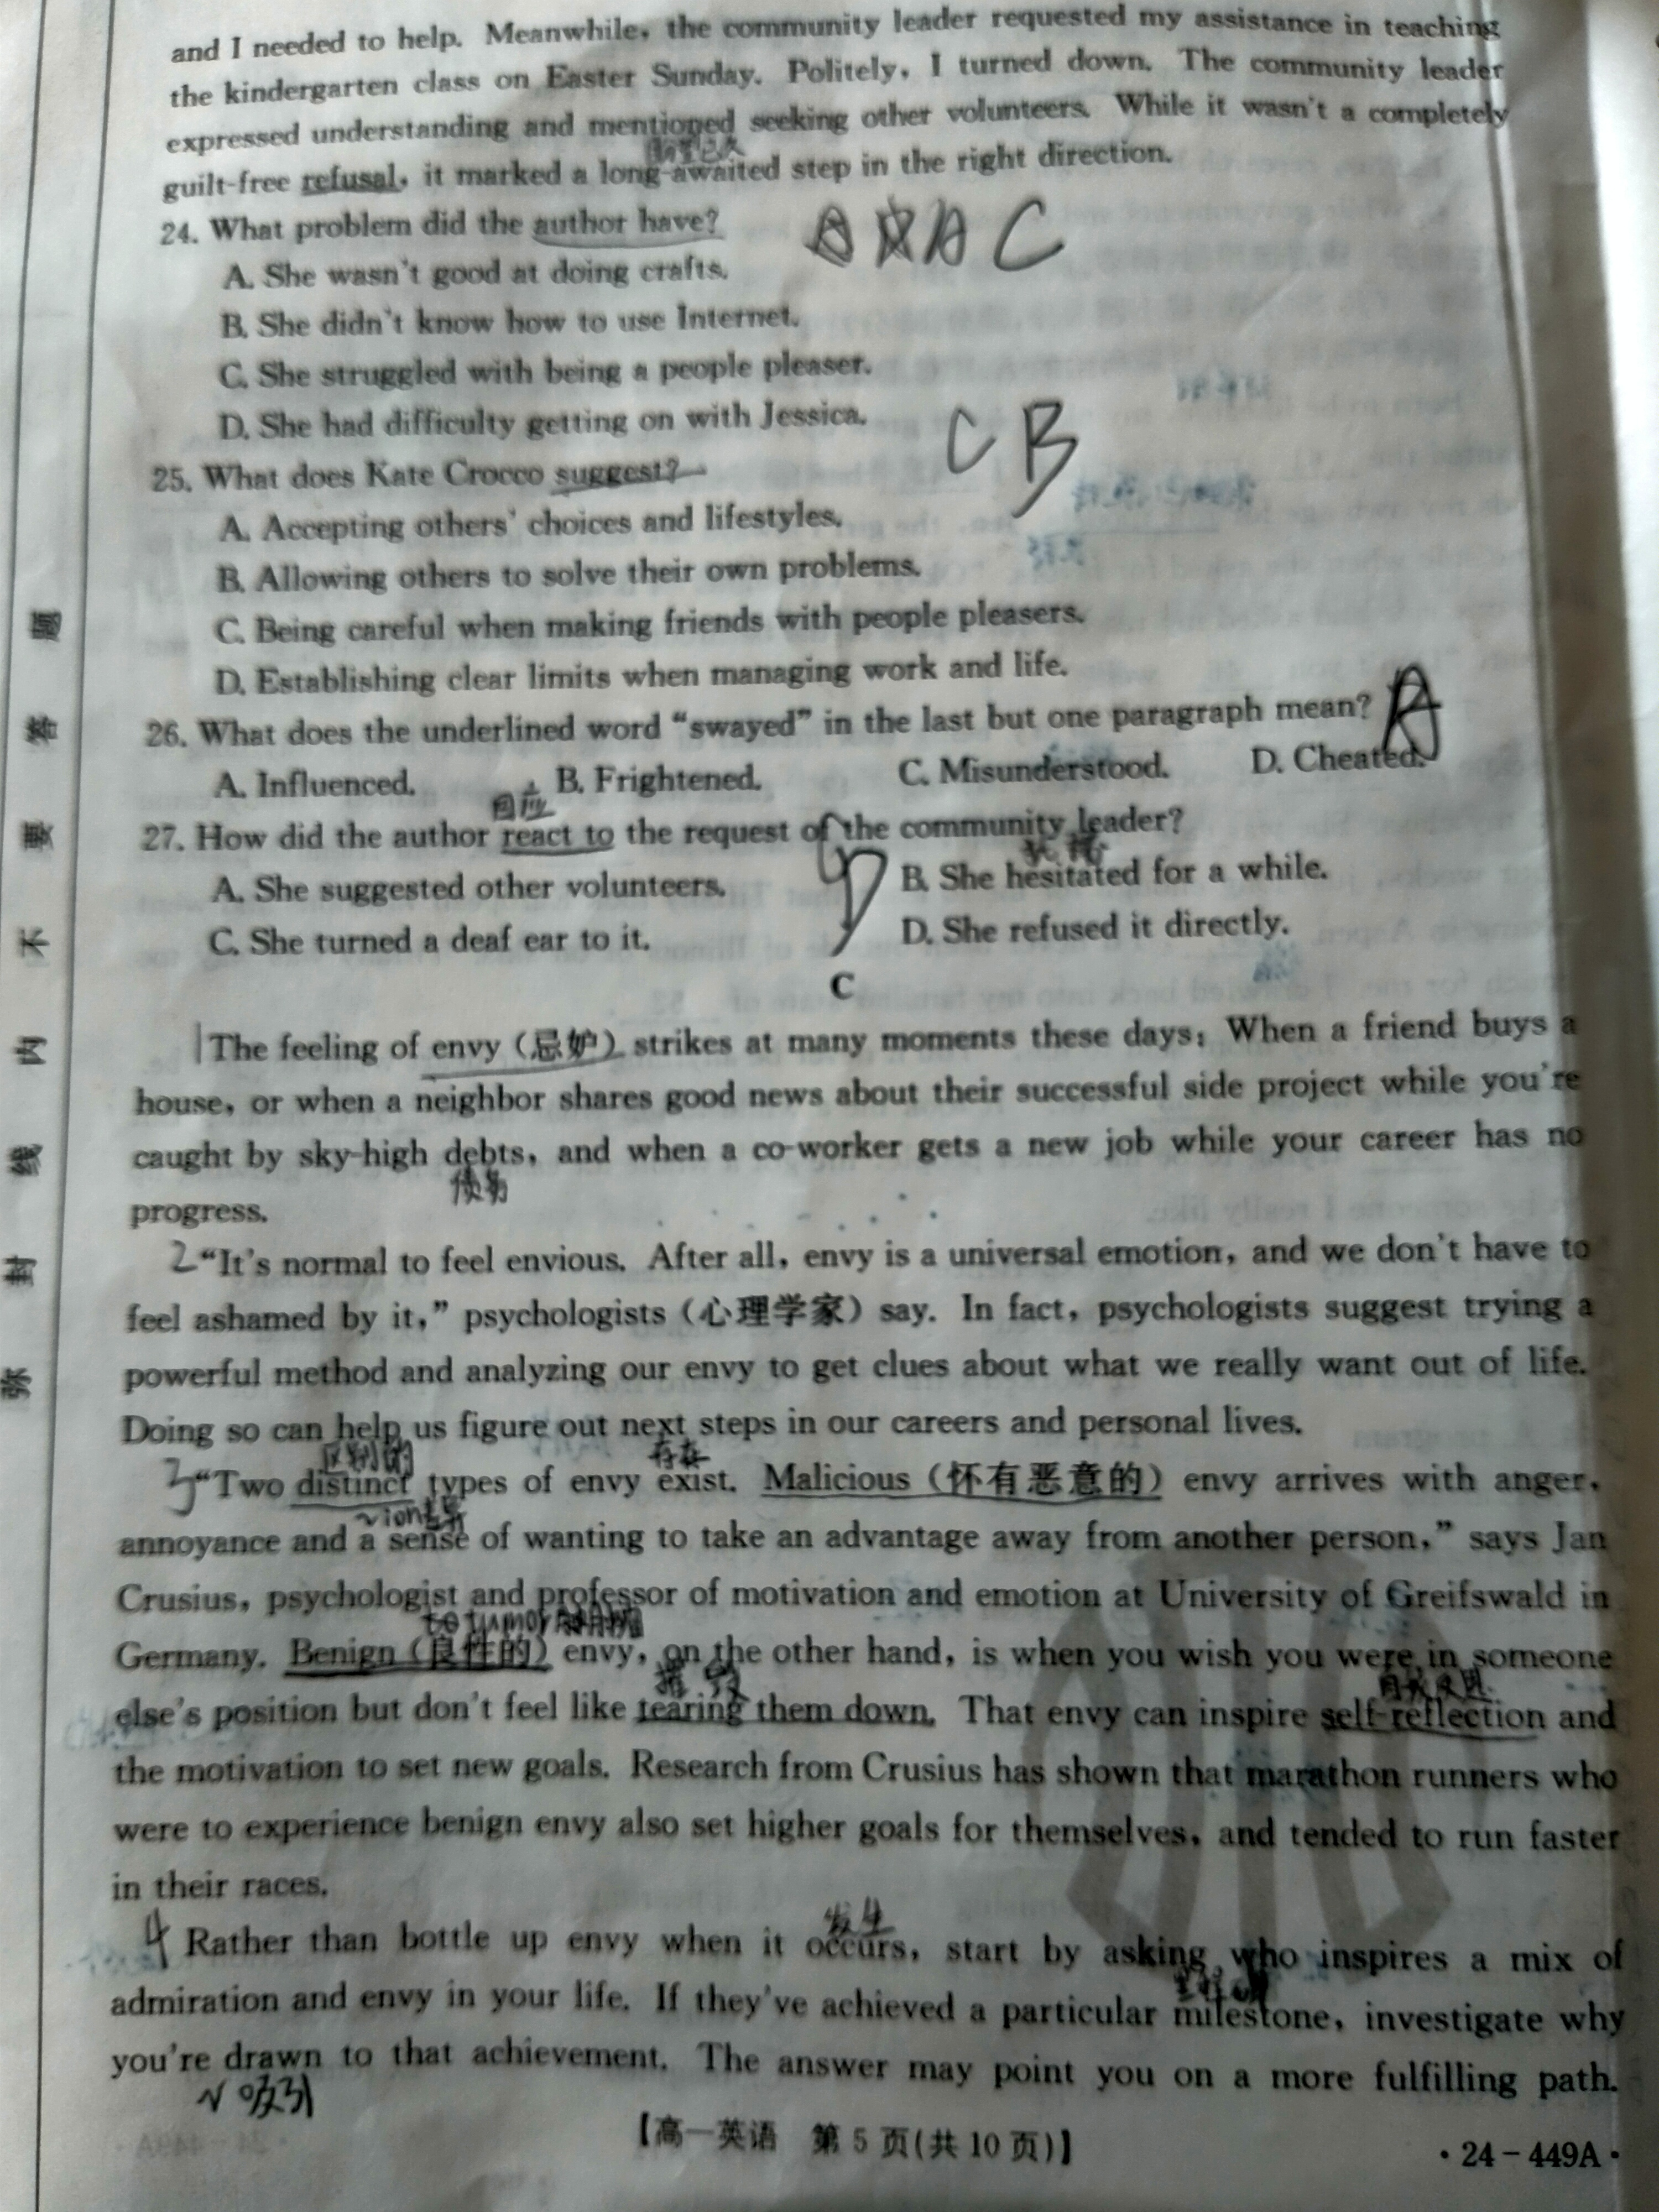 and I needed to help. Meanwhile, the community leader requested my assistance in teaching
the kindergarten class on Easter Sunday. Politely, I turned down. The community leader
expressed understanding and mentioned seeking other volunteers. While it wasn't a completely
guilt-free refusal, it marked a long-awaited step in the right direction.
24. What problem did the author have?
C
A. She wasn't good at doing crafts.
B. She didn't know how to use Internet.
C. She struggled with being a people pleaser.
D. She had difficulty getting on with Jessica.
C B
25. What does Kate Crocco suggest?
A. Accepting others' choices and lifestyles.
B. Allowing others to solve their own problems.
C. Being careful when making friends with people pleasers.
D. Establishing clear limits when managing work and life.
26. What does the underlined word “swayed” in the last but one paragraph mean? A
A. Influenced. B. Frightened. C. Misunderstood. D. Cheated.
回应
27. How did the author react to the request of the community leader?
A. She suggested other volunteers. B. She hesitated for a while.
C. She turned a deaf ear to it. D. She refused it directly.
C
The feeling of envy (忌妒) strikes at many moments these days: When a friend buys a
house, or when a neighbor shares good news about their successful side project while you're
caught by sky-high debts, and when a co-worker gets a new job while your career has no
债务
progress.
2 “It's normal to feel envious. After all, envy is a universal emotion, and we don't have to
feel ashamed by it,” psychologists (心理学家) say. In fact, psychologists suggest trying a
powerful method and analyzing our envy to get clues about what we really want out of life.
Doing so can help us figure out next steps in our careers and personal lives.
区别的 存在
3 “Two distinct types of envy exist. Malicious (怀有恶意的) envy arrives with anger,
annoyance and a sense of wanting to take an advantage away from another person,” says Jan
Crusius, psychologist and professor of motivation and emotion at University of Greifswald in
tumor
Germany. Benign (良性的) envy, on the other hand, is when you wish you were in someone
else's position but don't feel like tearing them down. That envy can inspire self-reflection and
the motivation to set new goals. Research from Crusius has shown that marathon runners who
were to experience benign envy also set higher goals for themselves, and tended to run faster
in their races.
发生
4 Rather than bottle up envy when it occurs, start by asking who inspires a mix of
admiration and envy in your life. If they've achieved a particular milestone, investigate why
you're drawn to that achievement. The answer may point you on a more fulfilling path.
吸引
【高一英语 第 5 页(共 10 页)】
·24-449A·
题
答
要
不
内
线
封
弥